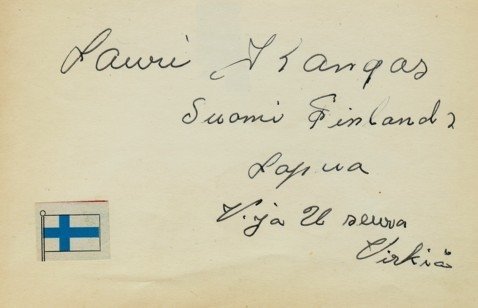 Lauri Kangas
Suomi Finland
Lapua
V. ja U seura
Virkiä